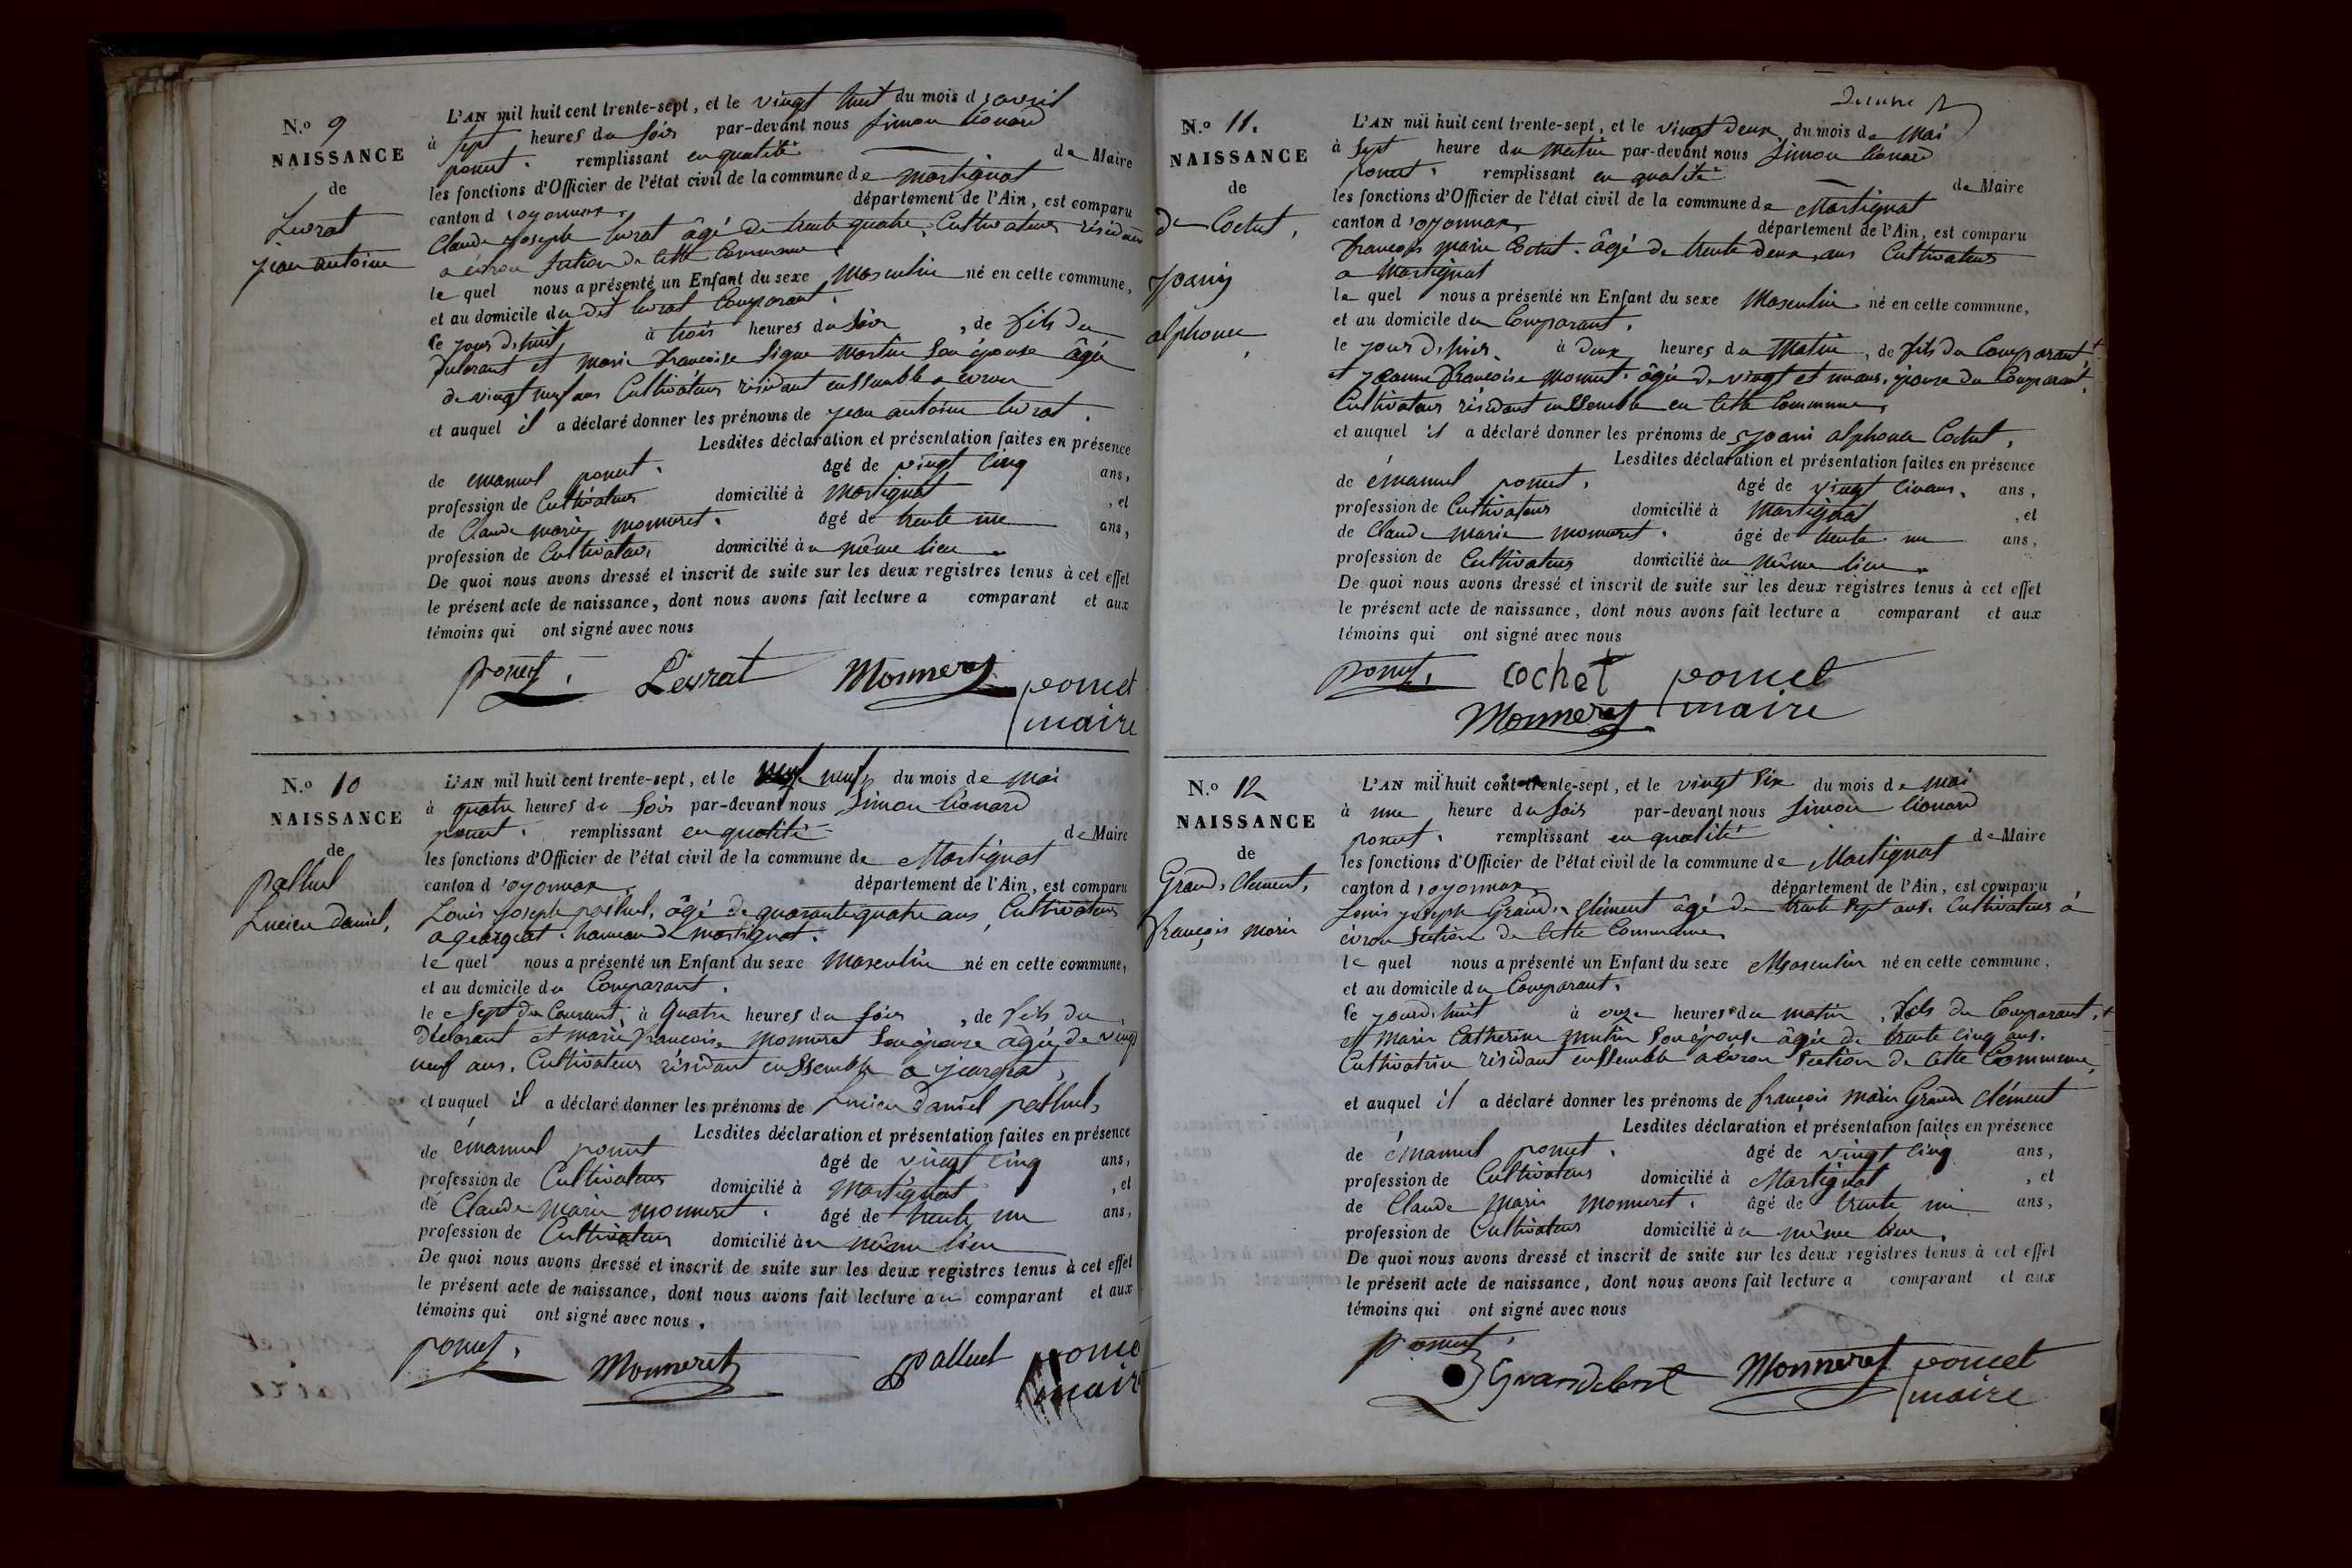 N.o 9
NAISSANCE
de
Levrat
jean antoine
L'AN mil huit cent trente-sept, et le vingt huit du mois d'avril
à sept heures du soir par-devant nous Simon Léonard
poncet. remplissant en qualité de Maire
les fonctions d'Officier de l'état civil de la commune de Martignat
canton d'oyonnax, département de l'Ain, est comparu
Claude joseph levrat âgé de trente quatre, Cultivateur résidant
a évron Section de cette Commune
le quel nous a présenté un Enfant du sexe Masculin né en cette commune,
et au domicile du dit levrat Comparant.
Ce jourd'huit à trois heures du soir, de fils du
déclarant et marie françoise martin Son épouse âgée
de vingt neuf ans Cultivateurs résidant enssemble a évron
et auquel il a déclaré donner les prénoms de jean antoine levrat.
Lesdites déclaration et présentation faites en présence
de émanuel poncet. âgé de vingt cinq ans,
profession de Cultivateur domicilié à Martignat, et
de Claude marie monneret. âgé de trente une ans,
profession de Cultivateur domicilié au même lieu.
De quoi nous avons dressé et inscrit de suite sur les deux registres tenus à cet effet
le présent acte de naissance, dont nous avons fait lecture a comparant et aux
témoins qui ont signé avec nous
poncet. Levrat Monneret poncet
maire
N.o 10
NAISSANCE
de
pathuel
Lucien daniel,
L'AN mil huit cent trente-sept, et le neuf du mois de mai
à quatre heures du Soir par-devant nous Simon Léonard
poncet. remplissant en qualité de Maire
les fonctions d'Officier de l'état civil de la commune de Martignat
canton d'oyonnax département de l'Ain, est comparu
Louis joseph pathuel, âgé de quarante quatre ans, Cultivateur
a hameau de martignat.
le quel nous a présenté un Enfant du sexe Masculin né en cette commune,
et au domicile du Comparant.
le sept du Courant, à Quatre heures du soir, de fils du
déclarant et marie françoise Monneret Son épouse âgée de vingt
neuf ans. Cultivateurs résidant enssemble a
et auquel il a déclaré donner les prénoms de Lucien daniel pathuel,
Lesdites déclaration et présentation faites en présence
de émanuel poncet âgé de vingt cinq ans,
profession de Cultivateur domicilié à Martignat, et
de Claude marie monneret. âgé de trente une ans,
profession de Cultivateur domicilié au même lieu
De quoi nous avons dressé et inscrit de suite sur les deux registres tenus à cet effet
le présent acte de naissance, dont nous avons fait lecture au comparant et aux
témoins qui ont signé avec nous.
poncet. Monneret palluel ponce
maire
N.o 11.
NAISSANCE
de
de Cochet,
joani
alphonse
L'AN mil huit cent trente-sept, et le vingt deux du mois de Mai
à Sept heure du Matin par-devant nous Simon Léonard
poncet. remplissant en qualité de Maire
les fonctions d'Officier de l'état civil de la commune de Martignat
canton d'oyonnax, département de l'Ain, est comparu
françois marie Cochet. âgé de trente deux ans Cultivateur
a Martignat
le quel nous a présenté un Enfant du sexe Masculin né en cette commune,
et au domicile du Comparant.
le jour d'hier à deux heures du Matin, de fils du Comparant
et jeanne françoise Monnet. âgée de vingt et un ans, épouse du Comparant,
Cultivateurs résidant enssemble en cette Commune,
et auquel il a déclaré donner les prénoms de joani alphonse Cochet,
Lesdites déclaration et présentation faites en présence
de émanuel poncet. âgé de vingt ans,
profession de Cultivateur domicilié à Martignat, et
de Claude marie monneret. âgé de trente une ans,
profession de Cultivateur domicilié au même lieu.
De quoi nous avons dressé et inscrit de suite sur les deux registres tenus à cet effet
le présent acte de naissance, dont nous avons fait lecture a comparant et aux
témoins qui ont signé avec nous
poncet. cochet poncet
Monneret maire
N.o 12
NAISSANCE
de
Grand, Clément,
François marie
L'AN mil huit cent trente-sept, et le vingt Six du mois de Mai
à une heure du Soir par-devant nous Simon Léonard
poncet. remplissant en qualité de Maire
les fonctions d'Officier de l'état civil de la commune de Martignat
canton d'oyonnax, département de l'Ain, est comparu
Louis joseph Grand, Clément âgé de trente Sept ans. Cultivateur à
évron Section de Cette Commune,
le quel nous a présenté un Enfant du sexe Masculin né en cette commune,
et au domicile du Comparant.
Ce jourd'huit à onze heures du matin, fils du Comparant,
et Marie Catherine Son épouse âgée de trente cinq ans.
Cultivatrice résidant enssemble a évron Section de Cette Commune,
et auquel il a déclaré donner les prénoms de françois Marie Grand Clément
Lesdites déclaration et présentation faites en présence
de émanuel poncet. âgé de vingt cinq ans,
profession de Cultivateur domicilié à Martignat, et
de Claude Marie Monneret. âgé de trente un ans,
profession de Cultivateur domicilié au même lieu.
De quoi nous avons dressé et inscrit de suite sur les deux registres tenus à cet effet
le présent acte de naissance, dont nous avons fait lecture a comparant et aux
témoins qui ont signé avec nous
poncet. Monneret poncet
maire